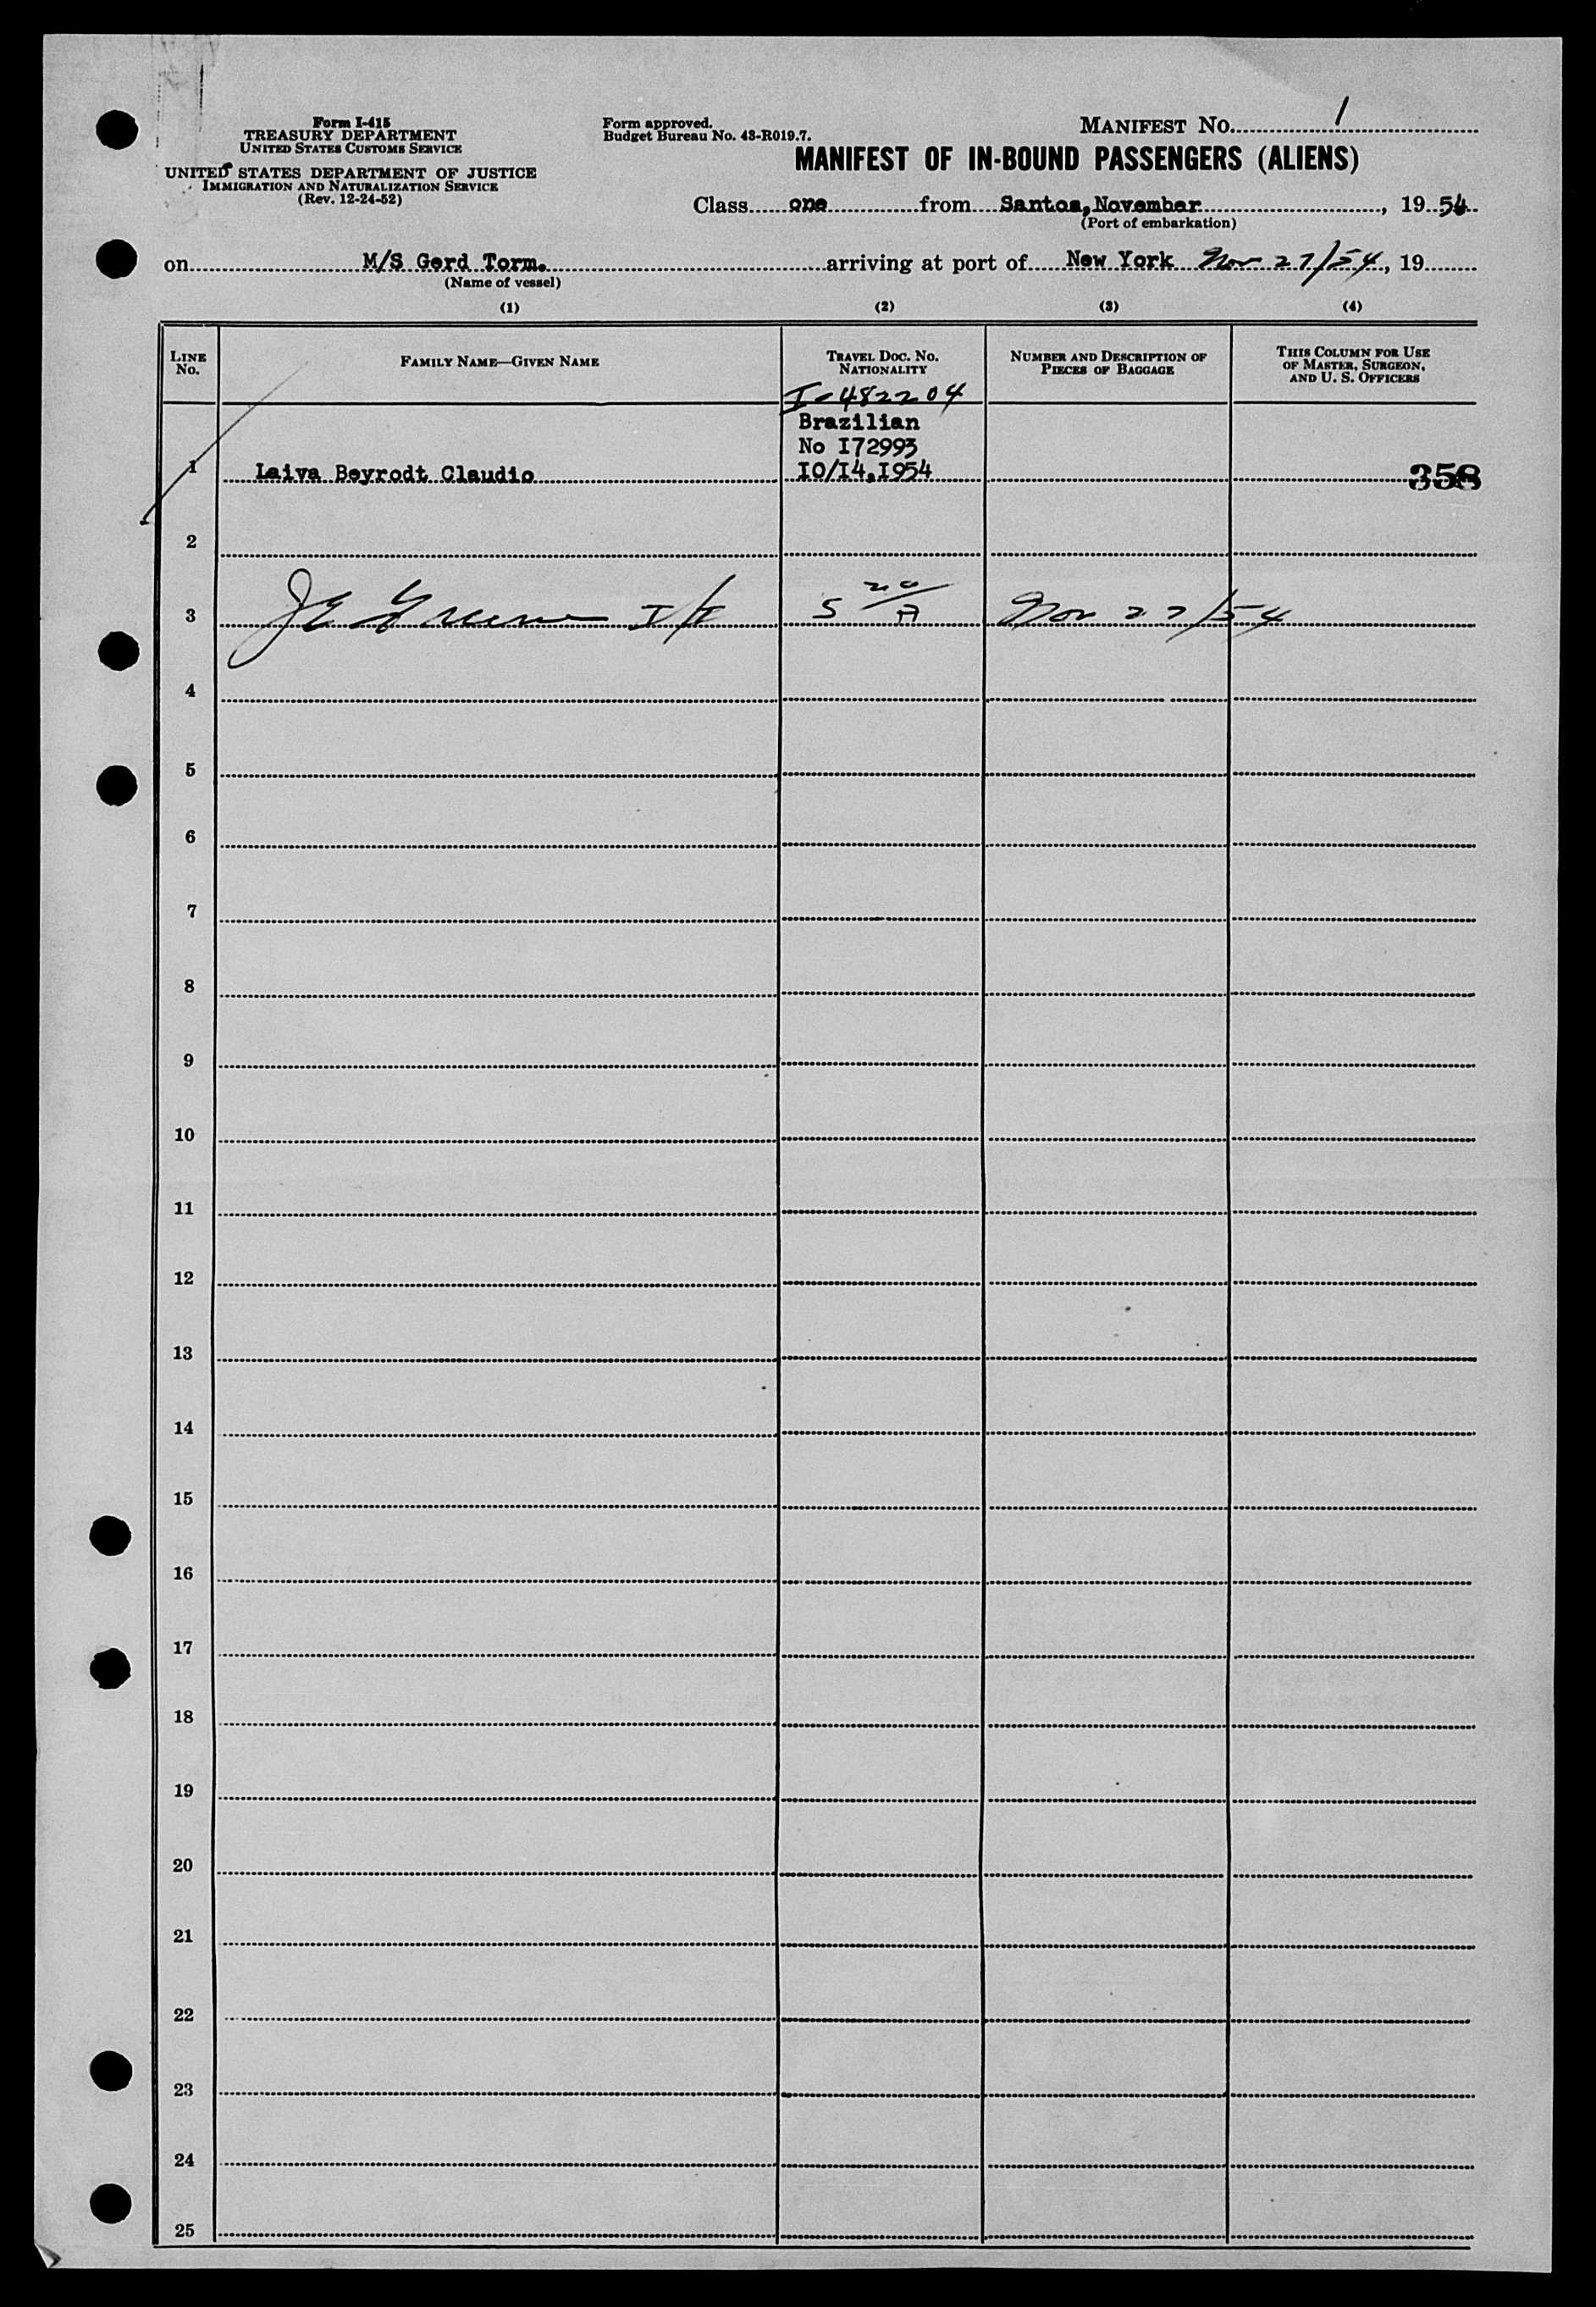 Form I-415
TREASURY DEPARTMENT
UNITED STATES CUSTOMS SERVICE
UNITED STATES DEPARTMENT OF JUSTICE
IMMIGRATION AND NATURALIZATION SERVICE
(Rev. 12-24-52)
Form approved.
Budget Bureau No. 43-R019.7.
MANIFEST No. 1
MANIFEST OF IN-BOUND PASSENGERS (ALIENS)
Class one from Santos, November, 19 54
(Port of embarkation)
on M/S Gerd Torm. arriving at port of New York Nov 27/54, 19
(Name of vessel)
(1) (2) (3) (4)
LINE No. FAMILY NAME—GIVEN NAME TRAVEL DOC. No. NATIONALITY NUMBER AND DESCRIPTION OF PIECES OF BAGGAGE THIS COLUMN FOR USE OF MASTER, SURGEON, AND U. S. OFFICERS
I-482204
Brazilian
No I72993
1 Laiva Beyrodt Claudio IO/I4,I954 358
2
3 J E Greene I/I S Nov 27/54
4
5
6
7
8
9
10
11
12
13
14
15
16
17
18
19
20
21
22
23
24
25